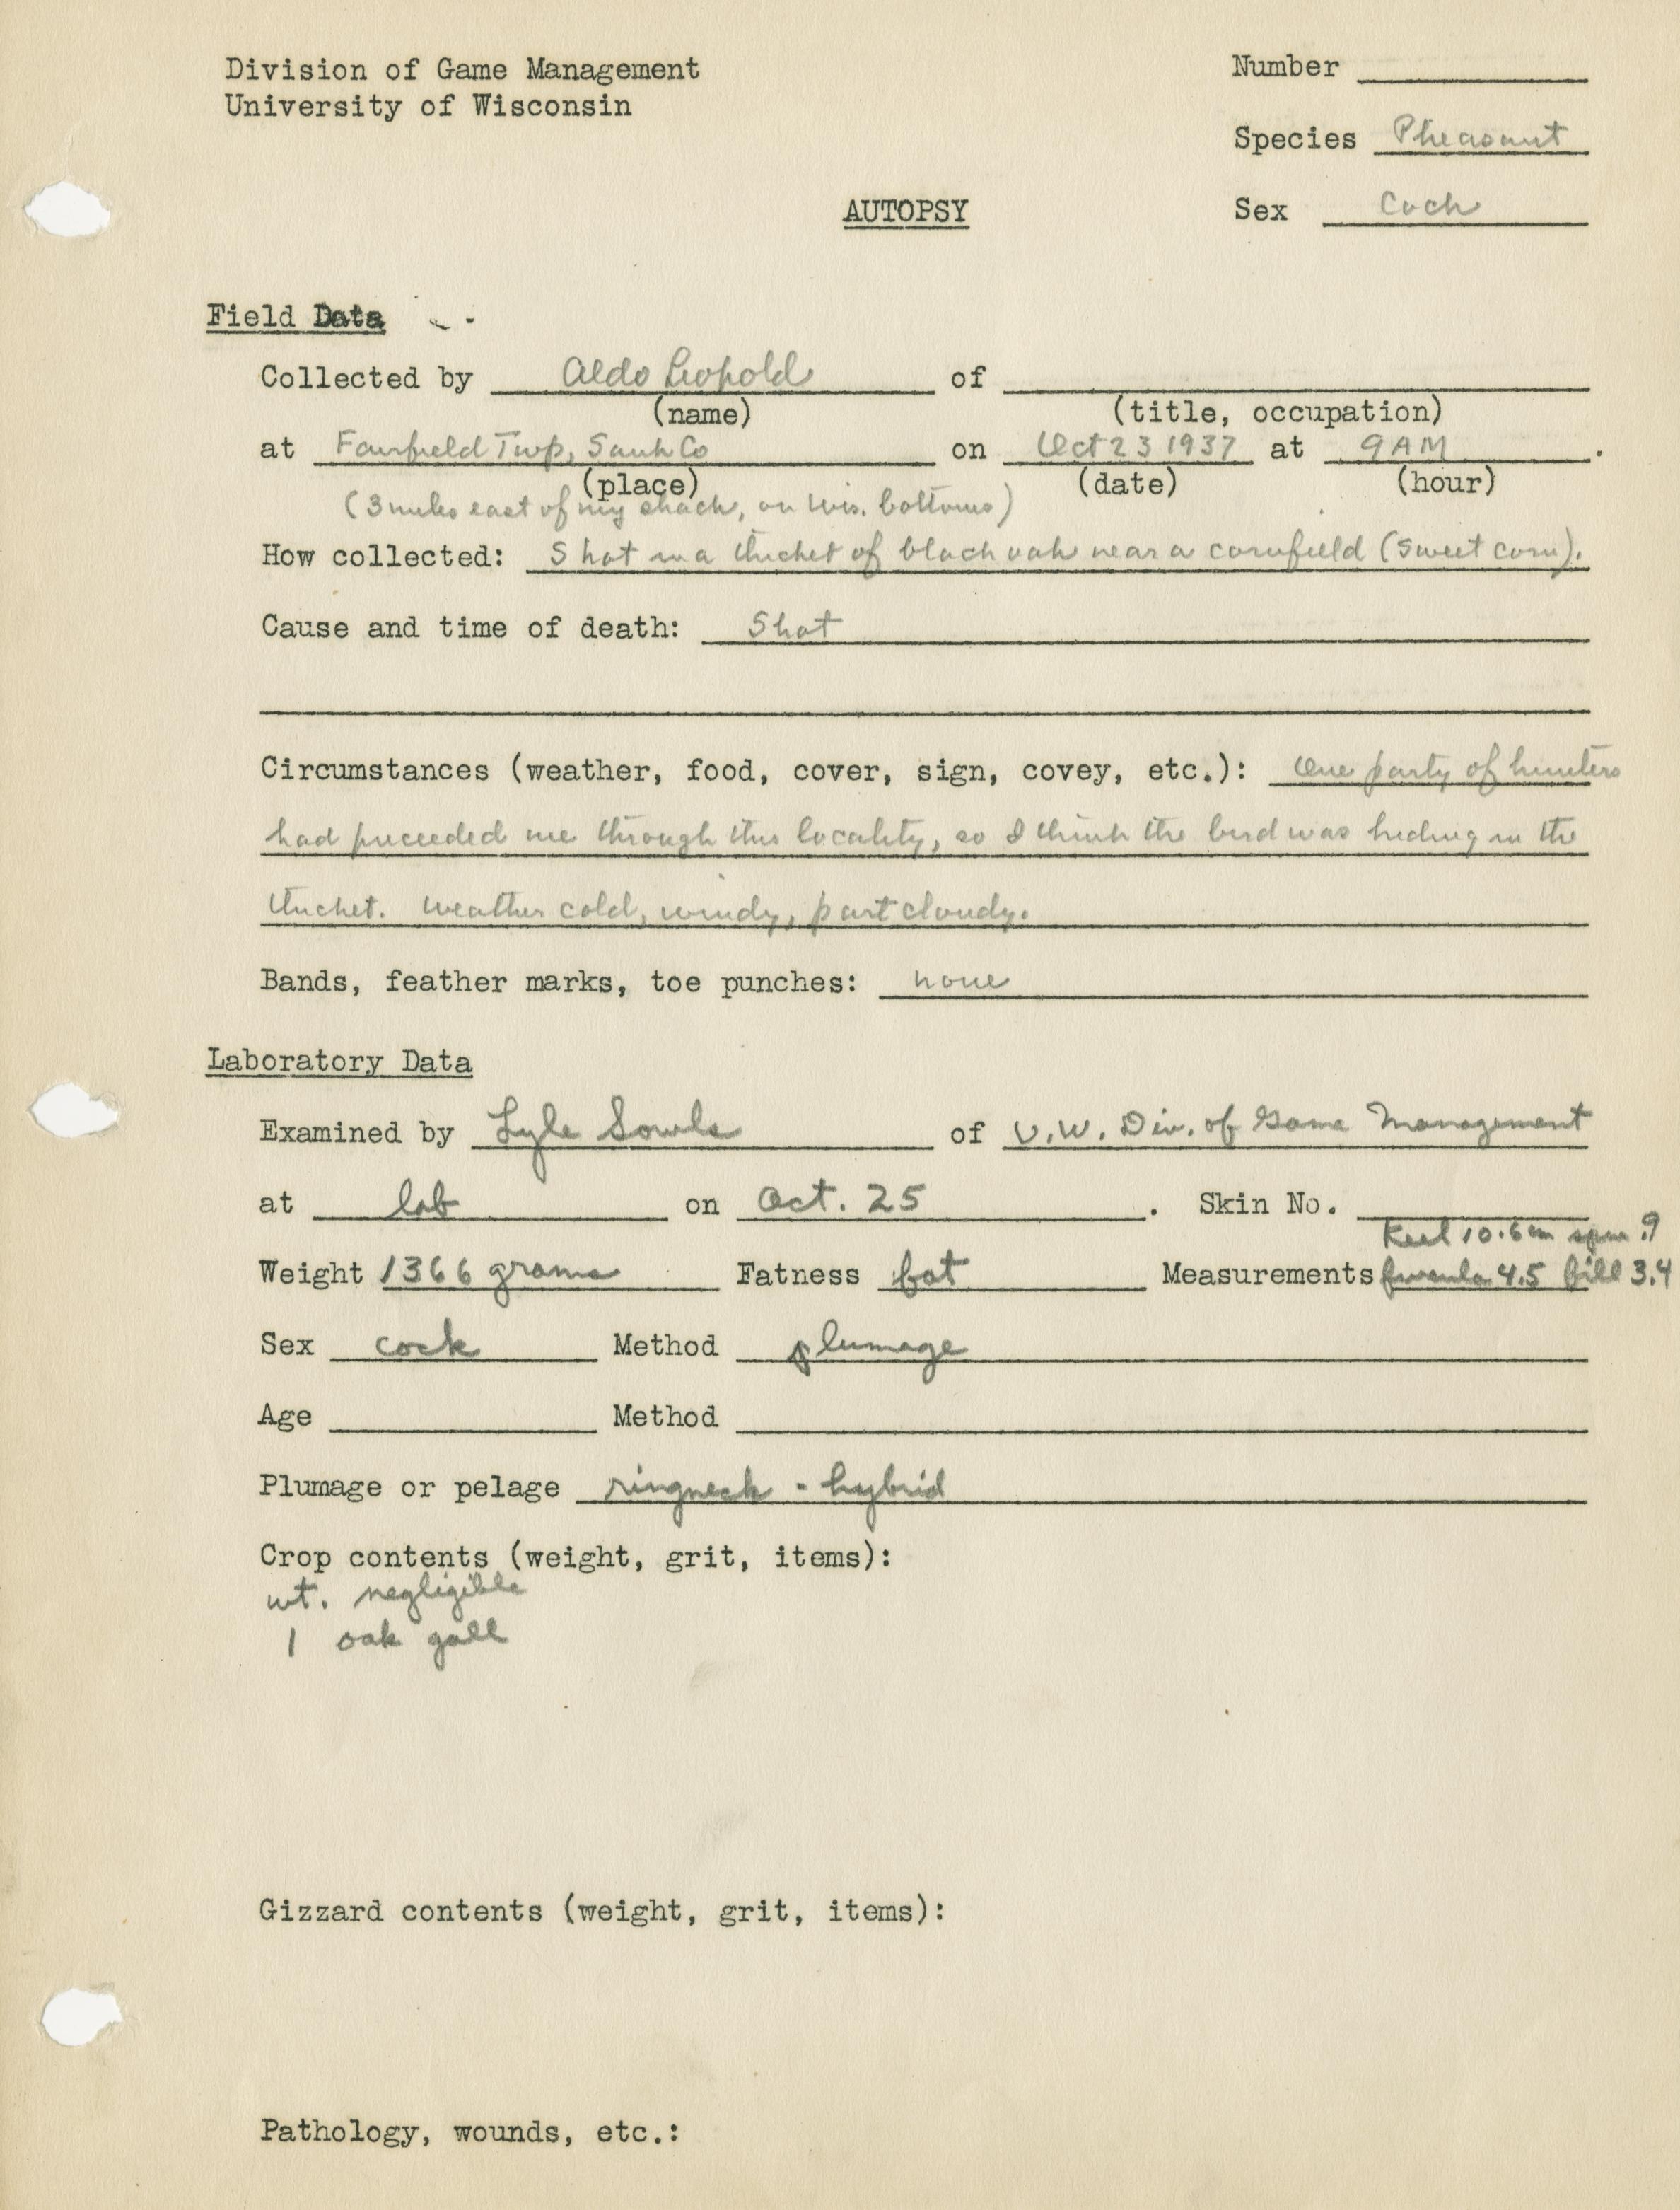 Division of Game Management
University of Wisconsin
Number
Species Pheasant
Sex Cock
AUTOPSY
Field Data
Collected by Aldo Leopold of
(name) (title, occupation)
at Fairfield Twp, Sauk Co on Oct 23 1937 at 9 AM.
(place) (date) (hour)
(3 miles east of my shack, on Wis. bottoms)
How collected: Shot in a thicket of black oak near a cornfield (sweet corn).
Cause and time of death: Shot
Circumstances (weather, food, cover, sign, covey, etc.): One party of hunters
had preceeded me through this locality, so I think the bird was hiding in the
thicket. Weather cold, windy, part cloudy.
Bands, feather marks, toe punches: none
Laboratory Data
Examined by Lyle Sowls of U.W. Div. of Game Management
at lab on Oct. 25. Skin No.
Keel 10.6 cm spur .9
Weight 1366 grams Fatness fat Measurements 4.5 bill 3.4
Sex cock Method plumage
Age Method
Plumage or pelage ringneck - hybrid
Crop contents (weight, grit, items):
wt. negligible
1 oak gall
Gizzard contents (weight, grit, items):
Pathology, wounds, etc.: